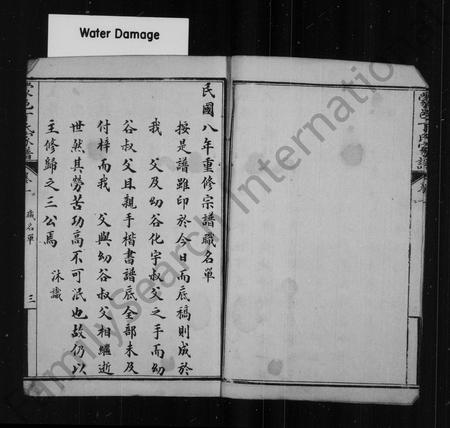 Water Damage
民國八年重修宗譜職名單
按是譜雖印於今日而底稿則成於
我 父及幼谷化宇叔父之手而幼
谷叔父且親手楷書譜底全部未及
付梓而我 父與幼谷叔父相繼逝
世然其勞苦功高不可泯也故仍以
主修歸之三公焉 沐識
職名單
三
FamilySearch International